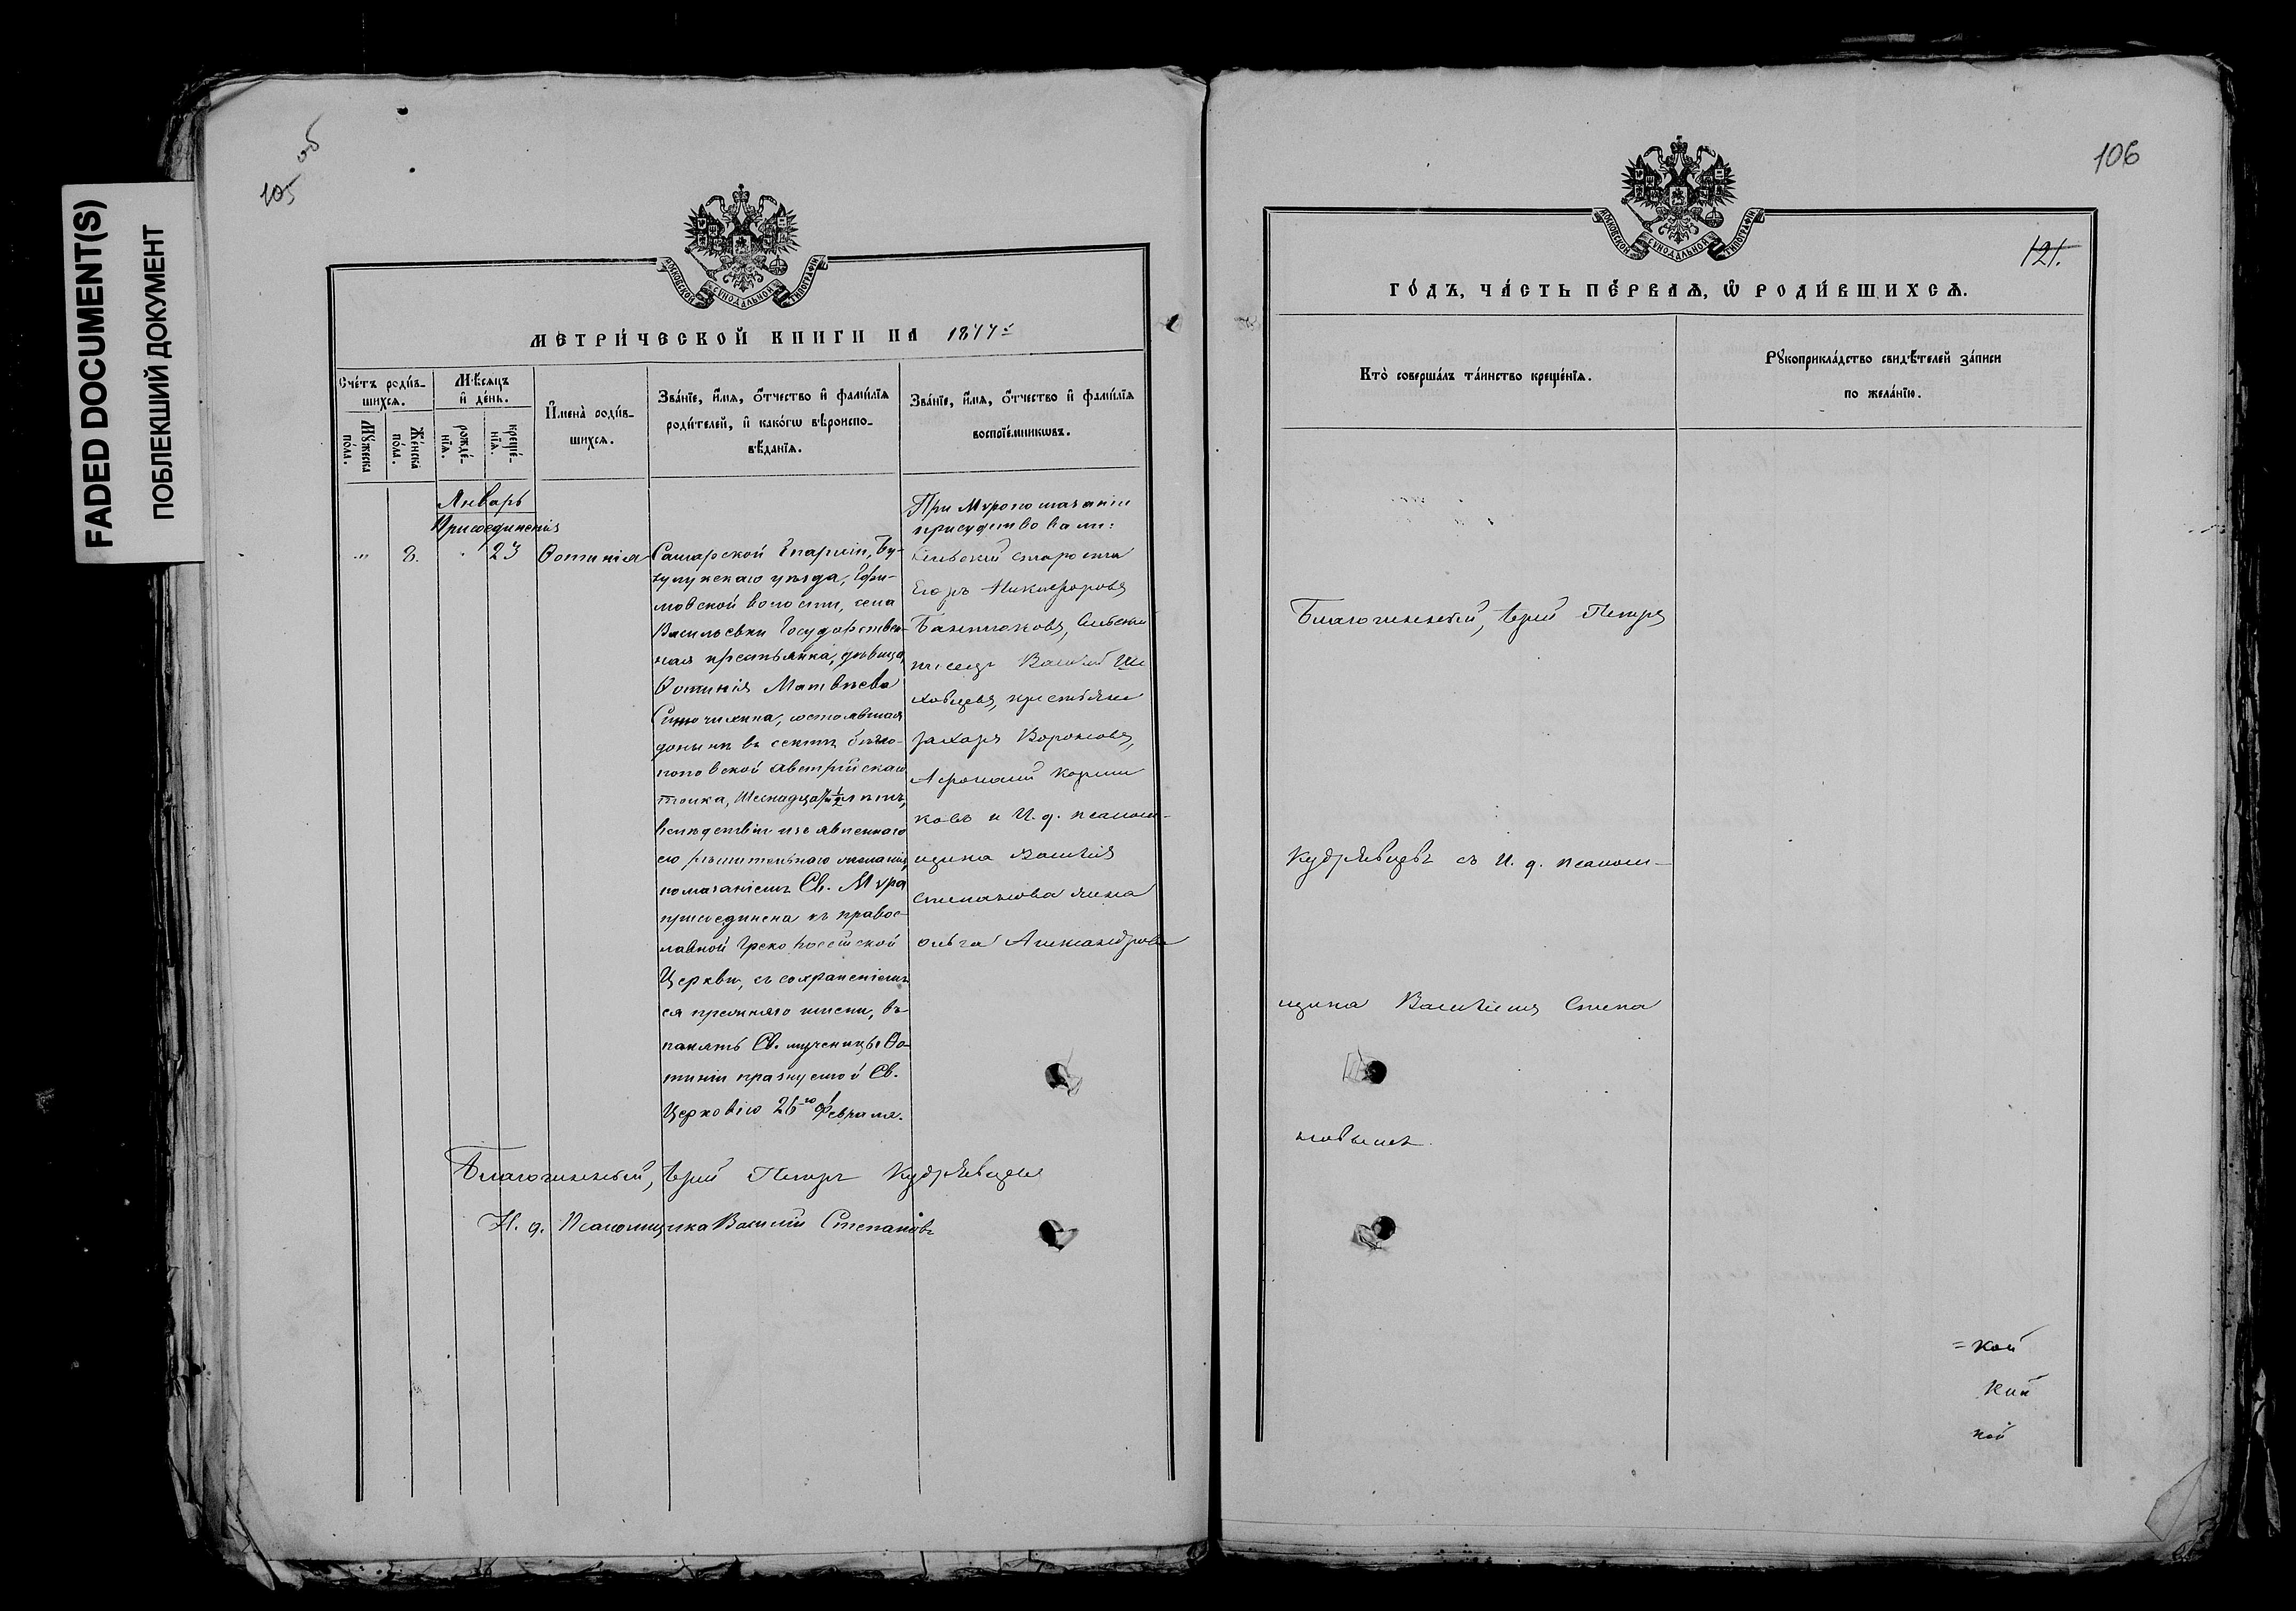 FADED DOCUMENT(S)
ПОБЛЕКШИЙ ДОКУМЕНТ
105 об
МОСКОВСКОЙ СУНОДАЛЬНОЙ ТИПОГРАФІИ
МЕТРИ́ЧЕСКОЙ КНИГИ НА 1877й
Сче́тъ роди́в-
шихсѧ.
Мꙋ́жеска по́ла.
Же́нска по́ла.
Мѣ́сѧцъ
и҆ де́нь.
рожде́-
нїѧ.
креще́-
нїѧ.
И҆мена̀ роди́в-
шихсѧ.
Зва́нїе, и҆́мѧ, ѻ҆́тчество и҆ фами́лїѧ
роди́телей, и҆ како́гѡ вѣроиспо-
вѣ́данїѧ.
Зва́нїе, и҆́мѧ, ѻ҆́тчество и҆ фами́лїѧ
воспрїе́мникѡвъ.
Январь
Присоединенія
" 8. " 23 Ѳотинія
Самарской Епархіи, Бу-
зулукскаго уѣзда, Ефи-
мовской волости, села
Васильевки Государствен-
ная крестьянка, дѣвица,
Ѳотинія Матвѣева
состоявшая
донынѣ въ сектѣ бѣгло-
поповской Австрійскаго
толка, лѣтъ,
вслѣдствіи изъявленнаго
ею рѣшительнаго желанія,
помазаніемъ Св. Мѵра
присоединена къ правос-
лавной Греко Россійской
Церкви, съ сохраненіемъ
ея прежняго имени, въ
память Св. мученицы Ѳо-
тиніи празнуемой Св.
Церковію 26го Февраля.
При Мѵропомазаніи
присудствовали:
Сельскій староста
Егоръ Никифоровъ
Сельскій
писецъ Василій
крестьяне
Захаръ Вороновъ,
и И. д. псалом-
щика Василія
Степанова жена
Ольга Александрова
Благочинный, Іерей Петръ Кудрявцевъ
И. д. Псаломщика Василій Степановъ
106
121.
МОСКОВСКОЙ СУНОДАЛЬНОЙ ТИПОГРАФІИ
ГО́ДЪ, ЧА́СТЬ ПЕ́РВАѦ, Ѡ҆ РОДИ́ВШИХСѦ.
Кто̀ соверша́лъ та́инство креще́нїѧ.
Рꙋкоприкла́дство свидѣ́телей за́писи
по жела́нїю.
Благочинный, Іерей Петръ
Кудрявцевъ съ И. д. псалом-
щика Василіемъ Степа
новымъ.
= кой
кий
кой